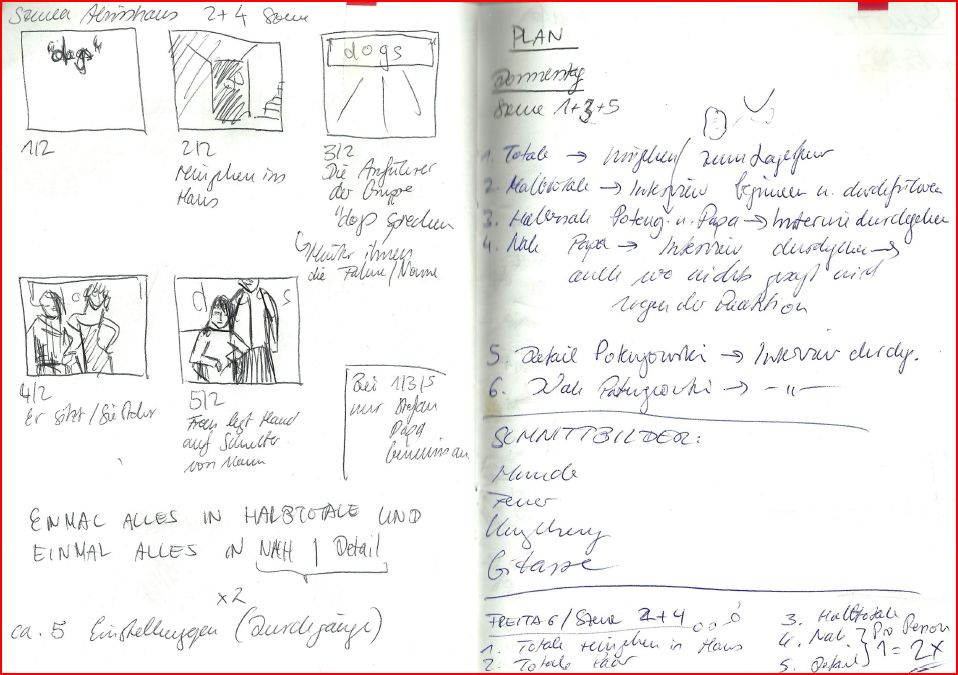 Szenen 2+4 Szene
"dogs"
dogs
1/2
2/2
Reingehen ins
Haus
3/2
Die Anführer
der Gruppe
"dogs sprechen
Hinter ihnen
die Fahne/Name
d o
d s
4/2
Er sitzt / Sie steht
5/2
Frau legt Hand
auf Schulter
von Mann
Bei 1/3/5
nur Stefan
Papa
EINMAL ALLES IN HALBTOTALE UND
EINMAL ALLES IN NAH | Detail
x2
ca. 5 Einstellungen (Durchgänge)
PLAN
Donnerstag
Szene 1+3+5
1. Totale → hingehen/ zum Lagerfeuer
2. Halbtotale → Interview beginnen u. durchführen
3. Halbnah u. Papa → Interview durchgehen
4. Nah Papa → Interview durchgehen →
auch wo nichts gesagt wird
wegen der Reaktion
5. Detail → Interview durchg.
6. Nah → -"-
SCHNITTBILDER:
Hunde
Feuer
Umgebung
Gitarre
FREITAG / Szene 2+4
1. Totale reingehen in Haus
2. Totale Paar
3. Halbtotale
4. Nah } Pro Person
5. Detail } 1 = 2x